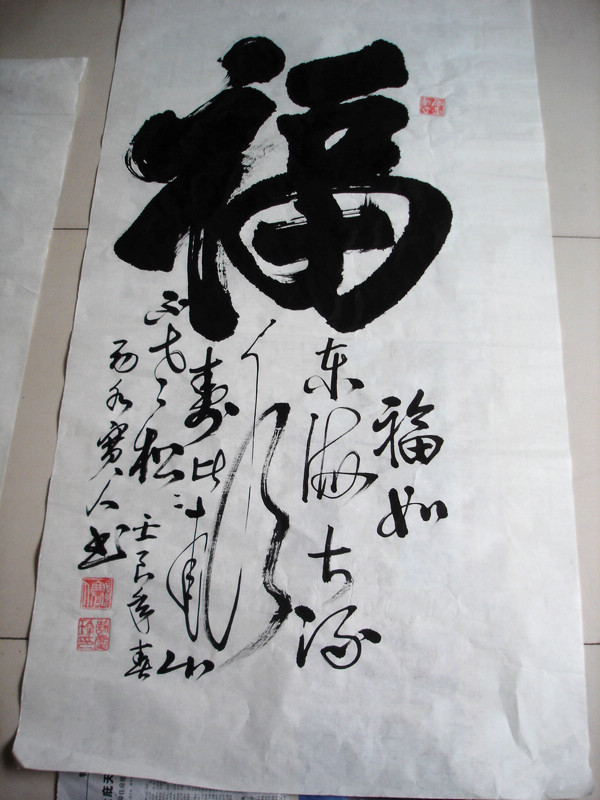 福
福如
东海长流
水
寿比南山
不老松
壬辰年春
人书